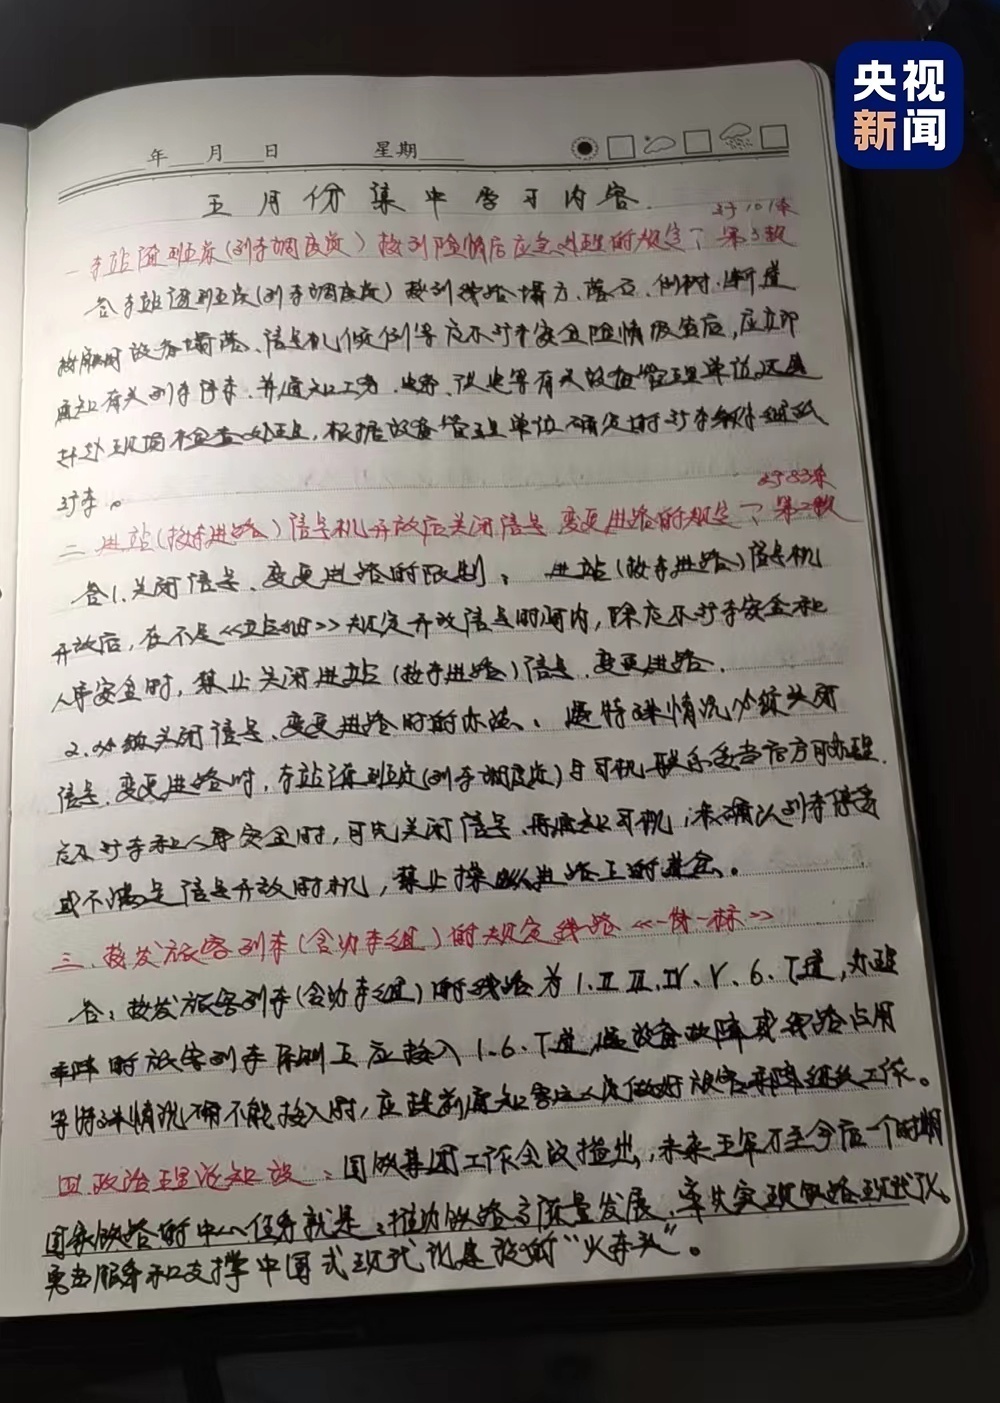 央视
新闻
年 月 日 星期
五月份集中学习内容.
行101条
一 车站值班员(列车调度员)接到险情后应急处理的规定? 第3款
答 车站值班员(列车调度员)接到线路塌方、落石、倒树、
设备塌落、信号机倾倒等危及行车安全险情报告后,应立即
通知有关列车停车,并通知工务、电务、供电等有关设备管理单位
赴现场检查处理,根据设备管理单位确定的行车条件组织
行车。
行83条
二 进站(接车进路)信号机开放后关闭信号 变更进路的规定? 第2款
答1.关闭信号、变更进路的限制: 进站(接车进路)信号机
开放后,在不是《站细》规定开放信号时间内,除危及行车安全和
人身安全时,禁止关闭进站(接车进路)信号、变更进路.
2.必须关闭信号、变更进路时的办法: 遇特殊情况必须关闭
信号、变更进路时,车站值班员(列车调度员)与司机联系妥当后方可办理.
危及行车和人身安全时,可先关闭信号,再通知司机;未确认列车停妥
或不满足信号开放时机,禁止操纵进路上的道岔。
三.接发旅客列车(含动车组)的规定线路《一体一标》
答:接发旅客列车(含动车组)的线路为1.Ⅱ Ⅲ.Ⅳ、Ⅴ、6.7道,办理
时旅客列车原则上应接入1.6.7道,遇设备故障或线路占用
等特殊情况确不能接入时,应提前通知客运人员做好旅客乘降组织工作。
四.政治理论知识:国铁集团工作会议指出,未来五年乃至今后一个时期
国家铁路的中心任务就是:推动铁路高质量发展,率先实现铁路现代化。
勇当服务和支撑中国式现代化建设的“火车头”。